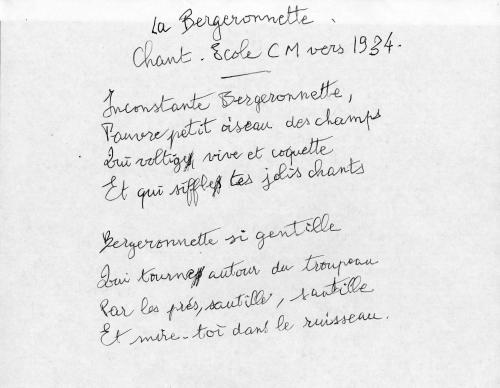 La Bergeronnette.
Chant. Ecole CM vers 1934.
Inconstante Bergeronnette,
Pauvre petit oiseau des champs
Qui voltiges vive et coquette
Et qui siffles tes jolis chants
Bergeronnette si gentille
Qui tournes autour du troupeau
Par les prés, sautille, sautille
Et mire-toi dans le ruisseau.